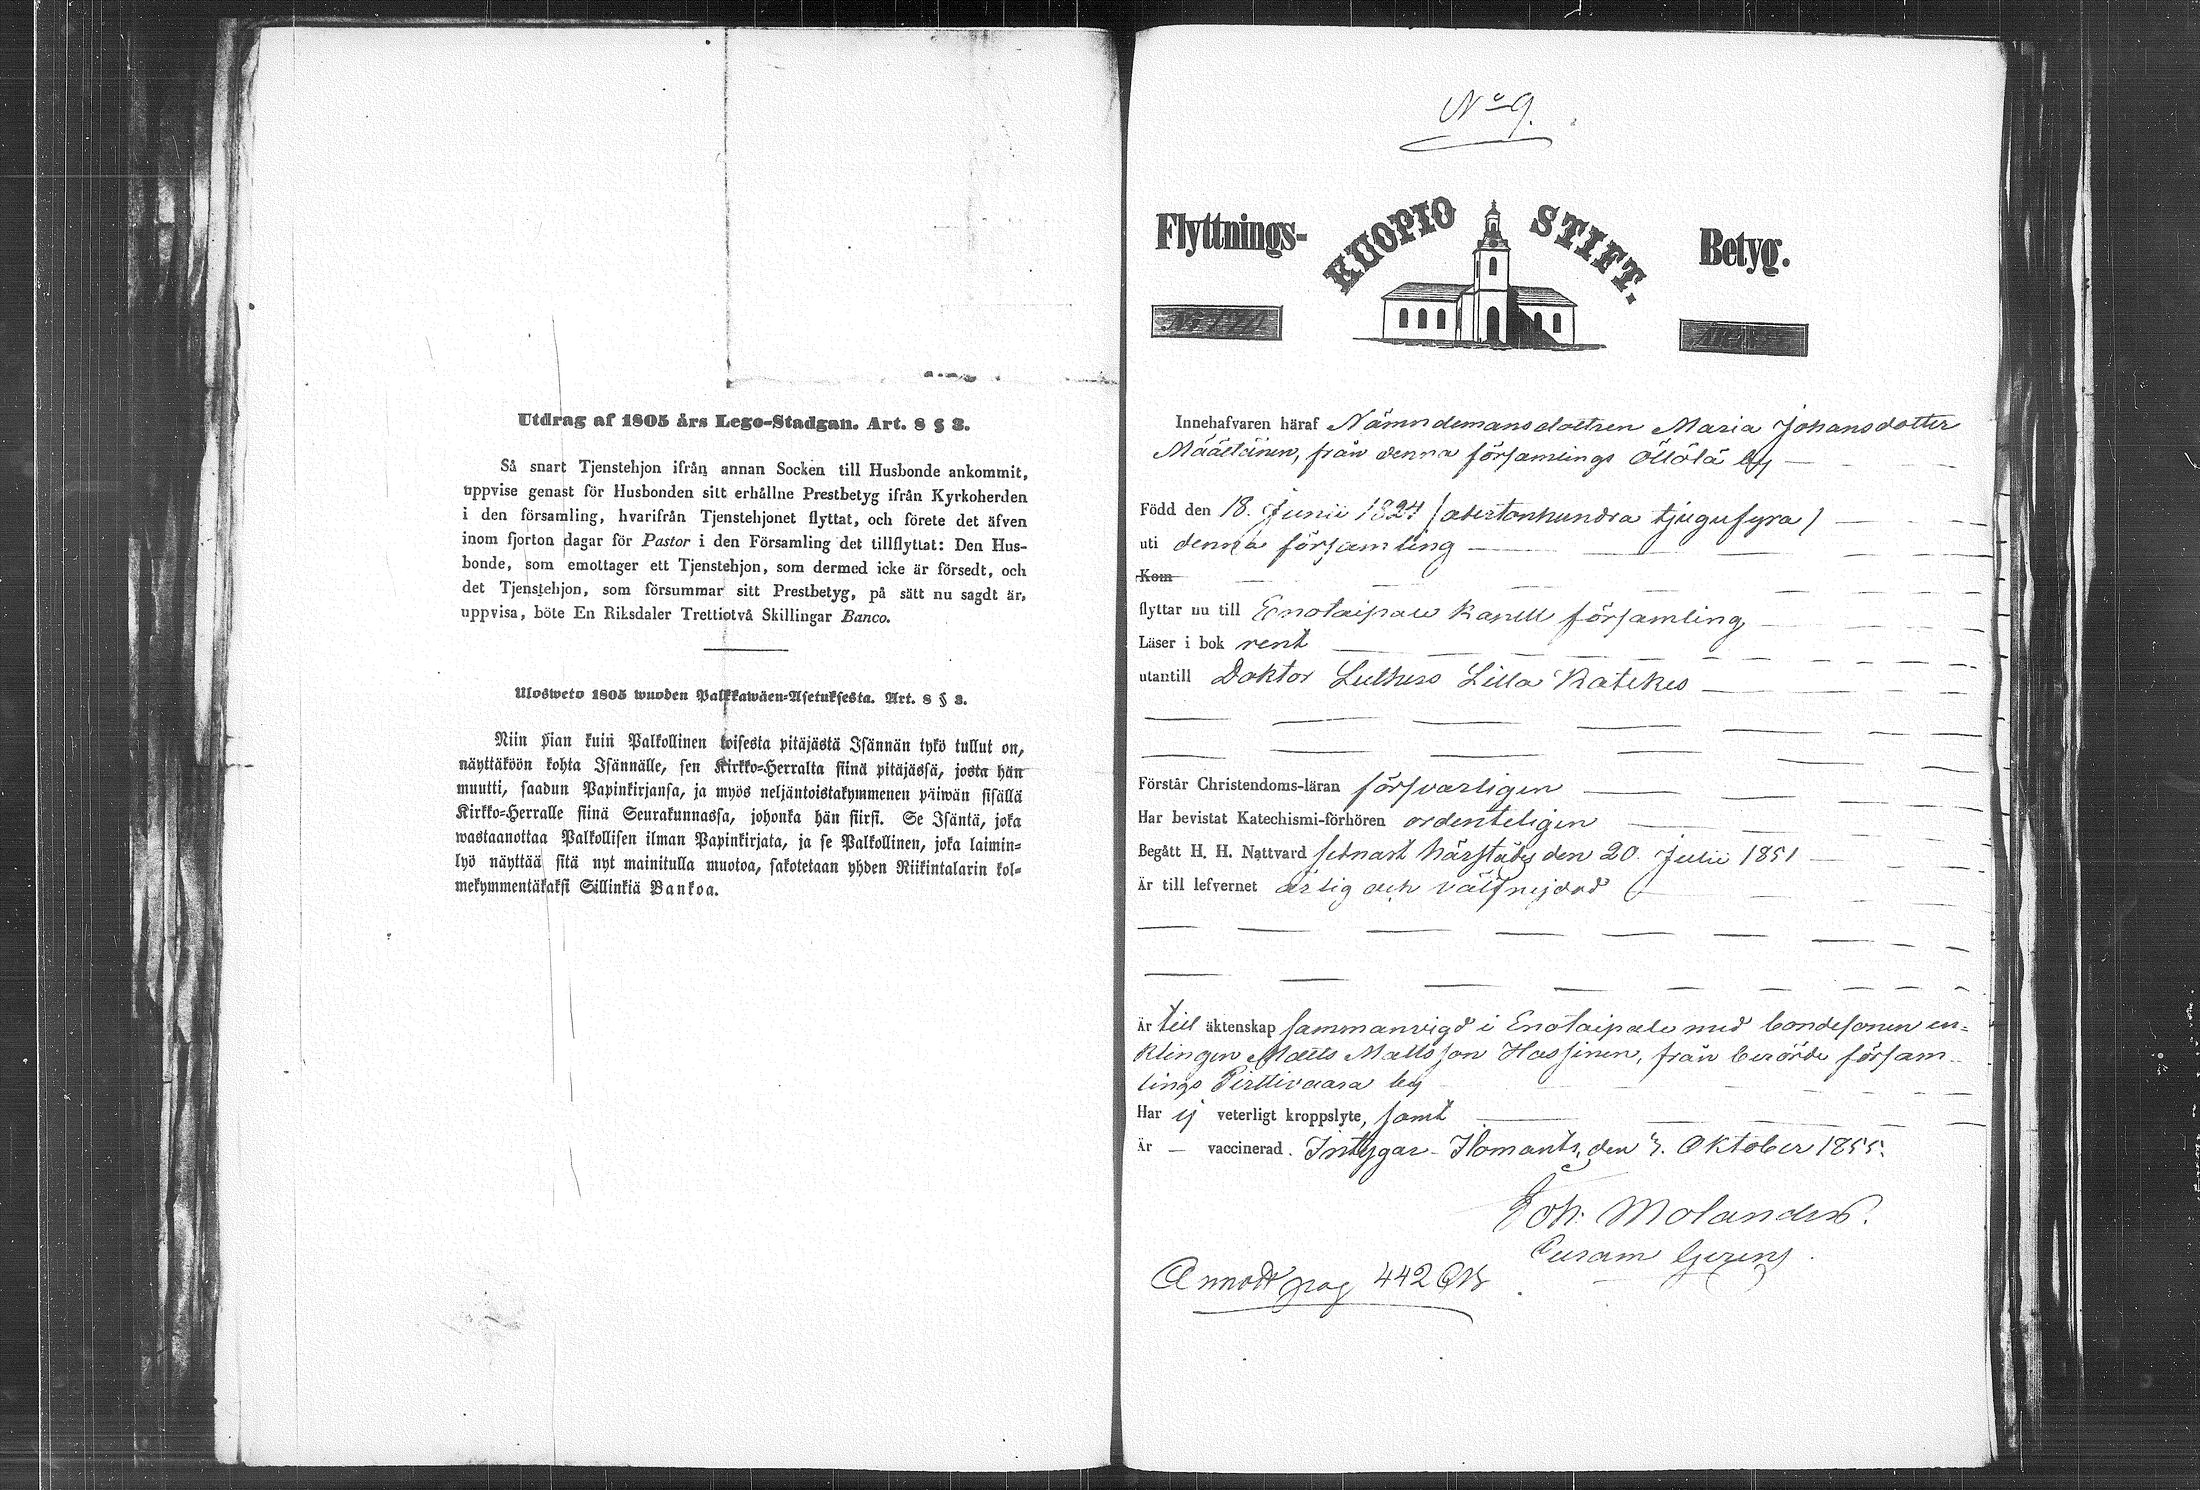 Utdrag af 1805 års Lego-Stadgan. Art. 8 § 3.
Så snart Tjenstehjon ifrån annan Socken till Husbonde ankommit,
uppvise genast för Husbonden sitt erhållne Prestbetyg ifrån Kyrkoherden
i den församling, hvarifrån Tjenstehjonet flyttat, och förete det äfven
inom fjorton dagar för Pastor i den Församling det tillflyttat: Den Hus-
bonde, som emottager ett Tjenstehjon, som dermed icke är försedt, och
det Tjenstehjon, som försummar sitt Prestbetyg, på sätt nu sagdt är,
uppvisa, böte En Riksdaler Trettiotvå Skillingar Banco.
Ulosweto 1805 wuoden Palkkawäen-Asetuksesta. Art. 8 § 3.
Niin pian kuin Palkollinen toisesta pitäjästä Isännän tykö tullut on,
näyttäköön kohta Isännälle, sen Kirkko-Herralta siinä pitäjässä, josta hän
muutti, saadun Papinkirjansa, ja myös neljäntoistakymmenen päiwän sisällä
Kirkko-Herralle siinä Seurakunnassa, johonka hän siirsi. Se Isäntä, joka
wastaanottaa Palkollisen ilman Papinkirjata, ja se Palkollinen, joka laimin-
lyö näyttää sitä nyt mainitulla muotoa, sakotetaan yhden Riikintalarin kol-
mekymmentäkaksi Sillinkiä Bankoa.
No 9.
Flyttnings- KUOPIO STIFT. Betyg.
Innehafvaren häraf Nämndemansdottren Maria Johansdotter
Määttänen, från denna församlings Öllölä by
Född den 18. Junii 1824 /adertonhundra tjugufyra/
uti denna församling
Kom
flyttar nu till Enotaipale Kapell församling
Läser i bok rent
utantill Doktor Luthers Lilla Katekes
Förstår Christendoms-läran försvarligen
Har bevistat Katechismi-förhören ordenteligen
Begått H. H. Nattvard sednast härstädes den 20. Julii 1851
Är till lefvernet ärlig och välfrejdad
Är till äktenskap sammanvigd i Enotaipale med bondesonen en-
klingen Matts Mattsson Hassinen, från berörde försam-
lings Pirttivaara by
Har ej veterligt kroppslyte, samt
Är — vaccinerad. Intygar. Ilomants, den 3. Oktober 1855.
Joh. Molander.
Curam Gerens.
Annott pag 442 CB